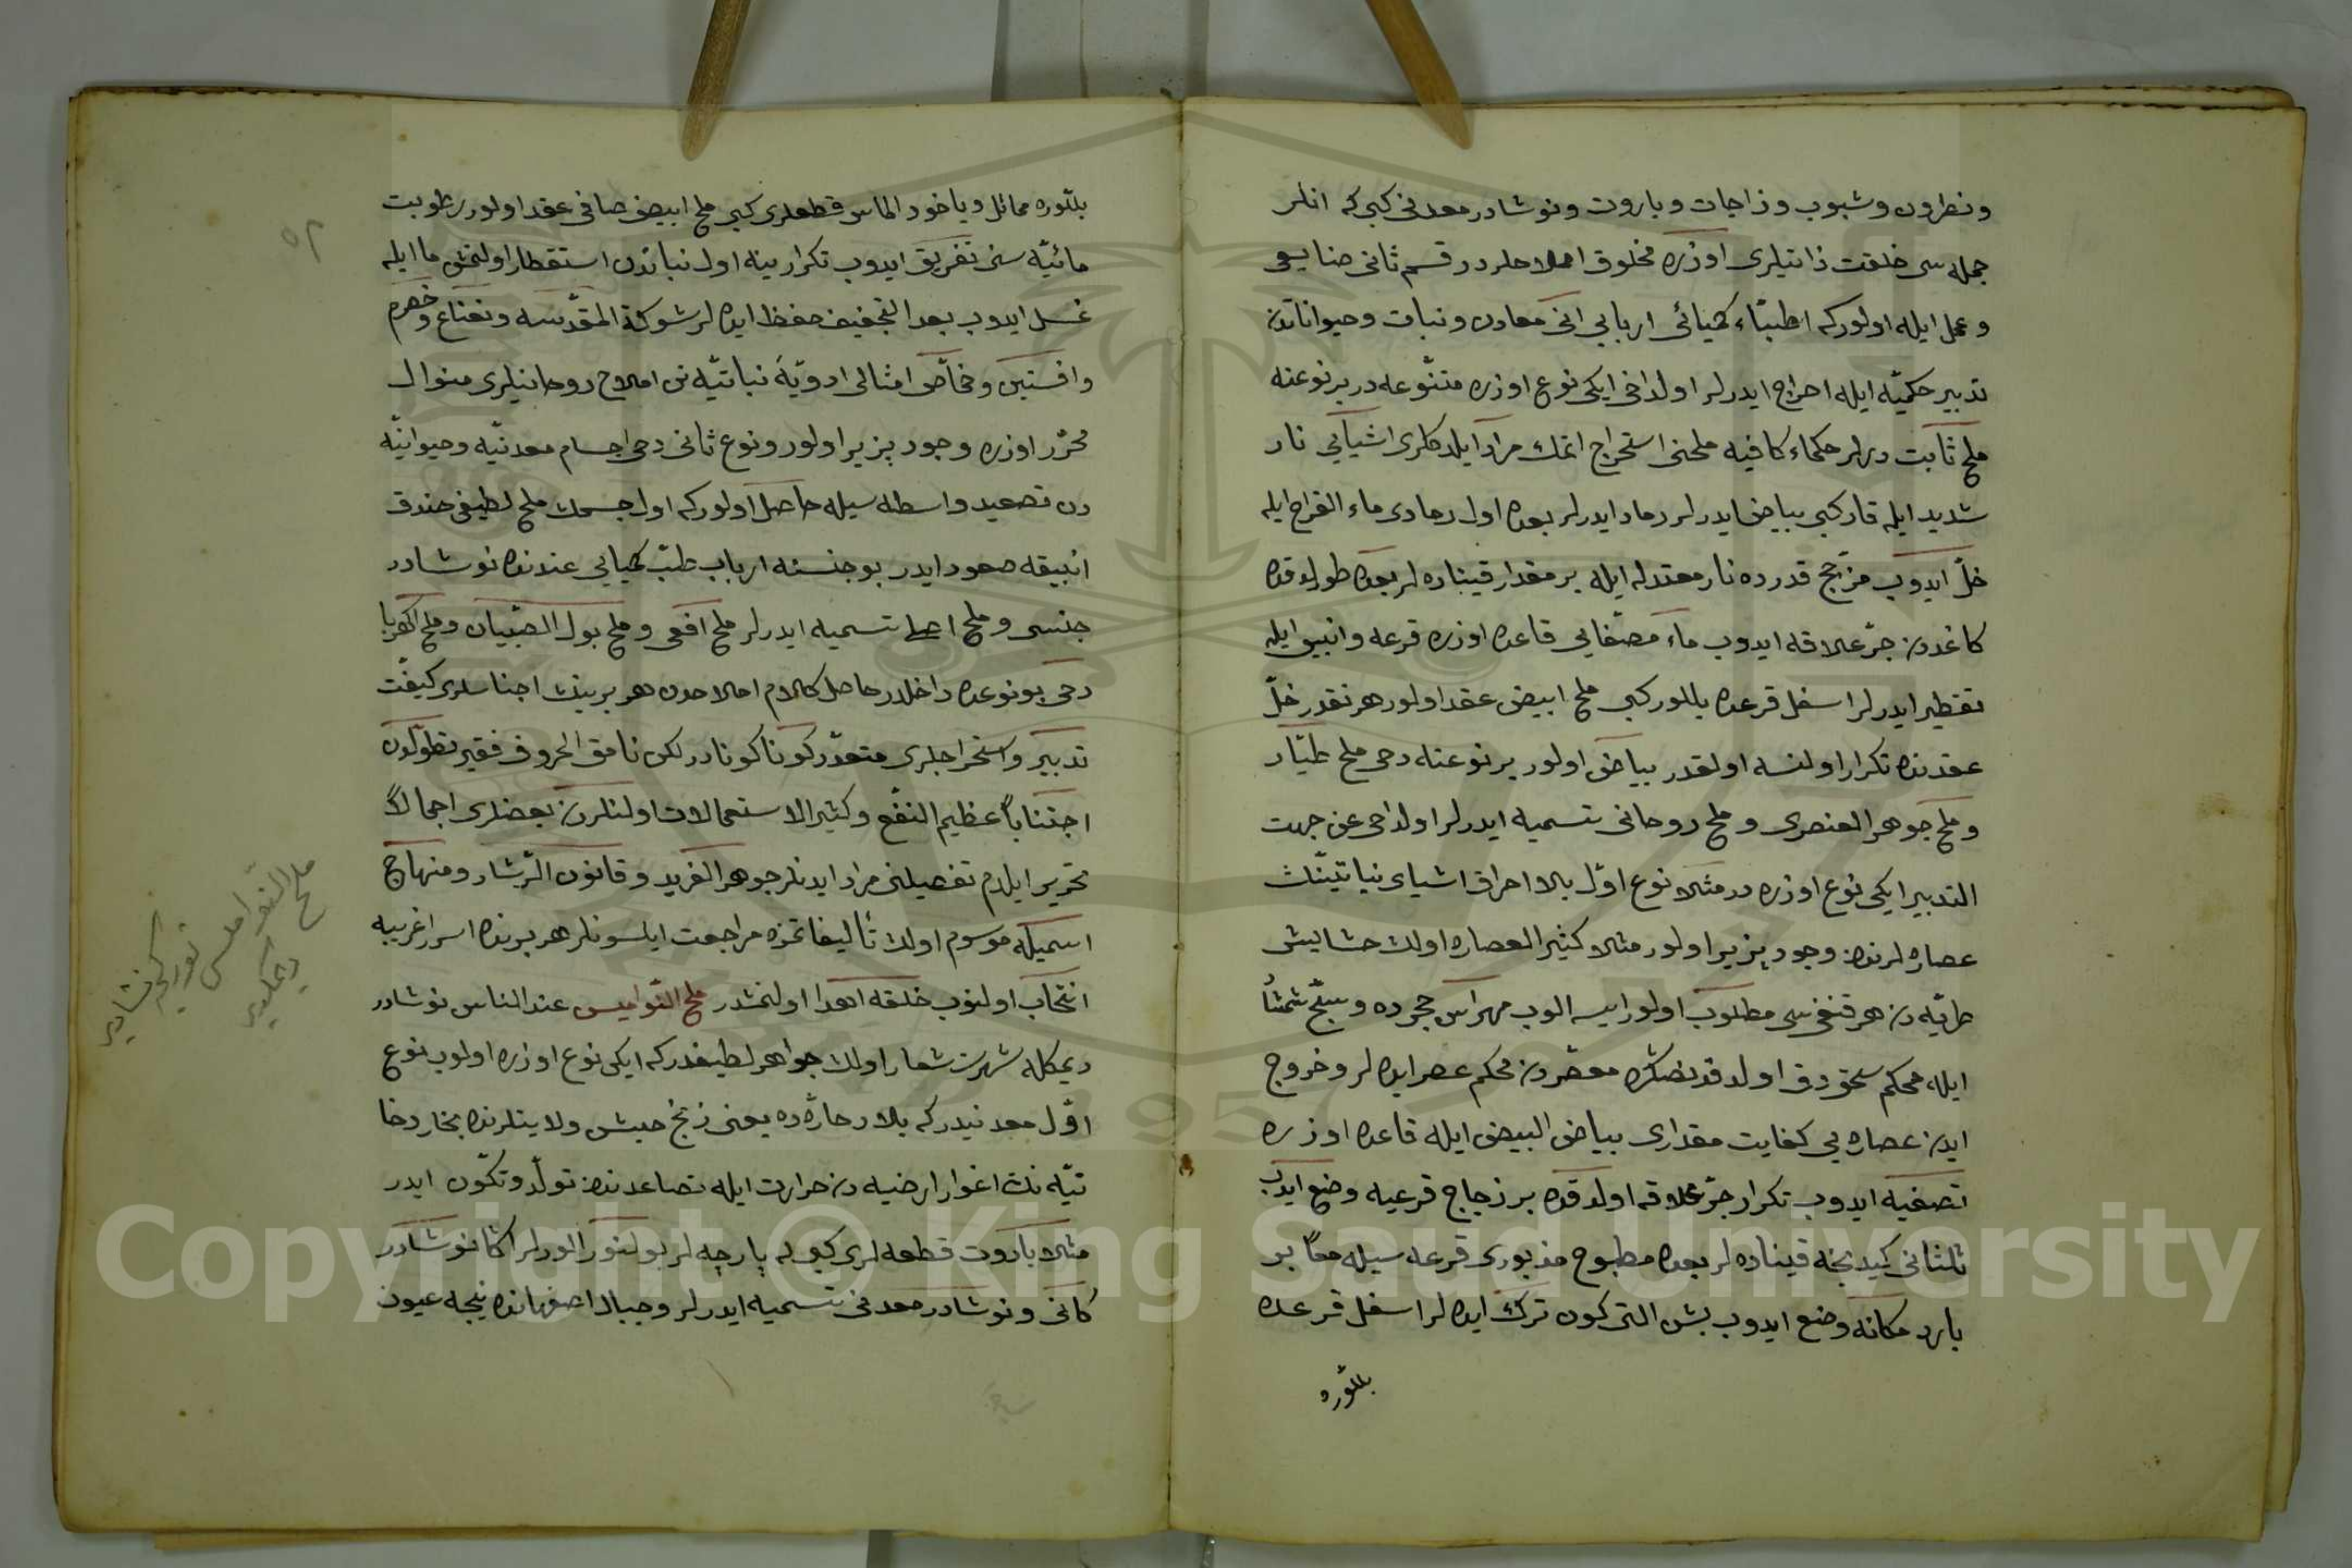 ونطرون وشبوب وزاجات وباروت ونوشادر معدنى كبى كه انلر
جمله سى خلقت ذاتيلرى اوزره مخلوق املاحلردر قسم ثانى صنايعى
وعمل ايله اولوركه اطبّاء كميائى اربابى انى معادن ونبات وحيواناتدن
تدبير حكميّه ايله اخراج ايدرلر اولداخى ايكى نوع اوزره متنوّعه در بر نوعنه
ملح ثابت ديرلر حكماء كافيه ملحنى استخراج اتمك مراد ايلدكلرى اشيايى نار
شديد ايله قار كبى بياض ايدرلر رماد ايدرلر بعده اول رمادى ماء القراح ايله
خلّ ايدوب مزجّج قدرده نار معتدله ايله بر مقدار قينادەلر بعده طورلدقده
كاغددن جرّ علاقه ايدوب ماء مصفّايى قاعده اوزره قرعه وانبيق ايله
تقطير ايدرلر اسفل قرعده بللور كبى ملح ابيض عقد اولور هر نقدر خلّ
عقدنده تكرار اولنسه اولقدر بياض اولور بر نوعنه دخى ملح طيّار
وملح جوهر العنصرى وملح روحانى تسميه ايدرلر اولداخى عن جهت
التدبير ايكى نوع اوزره در مثلا نوع اوّل بلا احراق اشياى نباتيّنك
عصارەلرندن وجود پزير اولور مثلا كثير العصاره اولان حشايش
طريّه دن هر قنغى سى مطلوب اولور ايسه الوب مهراس حجرده
ايله محكم سحق دق اولدقدنصكره معصردن محكم عصر ايدەلر وخروج
ايدن عصاره يى كفايت مقدارى بياض البيض ايله قاعده اوزره
تصفيه ايدوب تكرار جرّ علاقه اولدقده بر زجاج قرعيه وضع ايدوب
ثلثانى كيدنجه قينادەلر بعده مطبوخ مذبورى قرعه سيله معًا بر
بارد مكانه وضع ايدوب بش التى كون ترك ايدەلر اسفل قرعده
بللّوره
بللّوره مماثل وياخود الماس قطعلرى كبى ملح ابيض صافى عقد اولور رطوبت
مائيّه سنى تفريق ايدوب تكرار ينه اول نباتدن استقطار اولنمش ما ايله
غسل ايدوب بعد التجفيف حفظ ايدەلر شوكة المقدّسه ونعناع وخصرم
وافسنتين وخمّاض امثالى ادويّهٔ نباتيّه نن املاح روحانيلرى منوال
محرّر اوزره وجود پزير اولور ونوع ثانى دخى اجسام معدنيّه وحيوانيّه
دن تصعيد واسطه سيله حاصل اولوركه اول جسمك ملح لطيفى صندوق
انبيقه صعود ايدر بو جنسنه ارباب طبّ كميايى عندنده نوشادر
جنسى وملح تسميه ايدرلر ملح افعى وملح بول الصّبيان وملح الكهربا
دخى بو نوعده داخلدر حاصل كلام املاحدن هر برينك اجناسلرى كيفيّت
تدبير واستخراجلرى متعدّر كوناكونادر لكن نامق الحروف فقير تطوّلدن
اجتنابًا عظيم النّفع وكثير الاستعمالات اولنلردن بعضلرى اجمالاً
تحرير ايلدم تفصيلنى مراد ايدنلر جوهر الفريد وقانون الرّشاد ومنهاج
اسميله موسوم اولان تأليفاتمزه مراجعت ايلسونلر هر برنده اسرار غريبه
انتخاب اولنوب خلقه اهدا اولنمشدر ملح النّواميس عند الناس نوشادر
ديمكله شهرت شعار اولان جواهر لطيفدركه ايكى نوع اوزره اولوب نوع
اوّل معدنيدركه بلاد حارّه ده يعنى زنج حبش ولايتلرنده بخار دخا
نيّه نك اغوار ارضيه دن حرارت ايله تصاعدندن تولّد وتكوّن ايدر
مثلا باروت قطعه لرى كبى پارچه لر بولنور الورلر اكا نوشادر
كانى ونوشادر معدنى تسميه ايدرلر وجبال اصفهانده نيجه عيون
ملح النّواميس
ديمكدر
٥٢